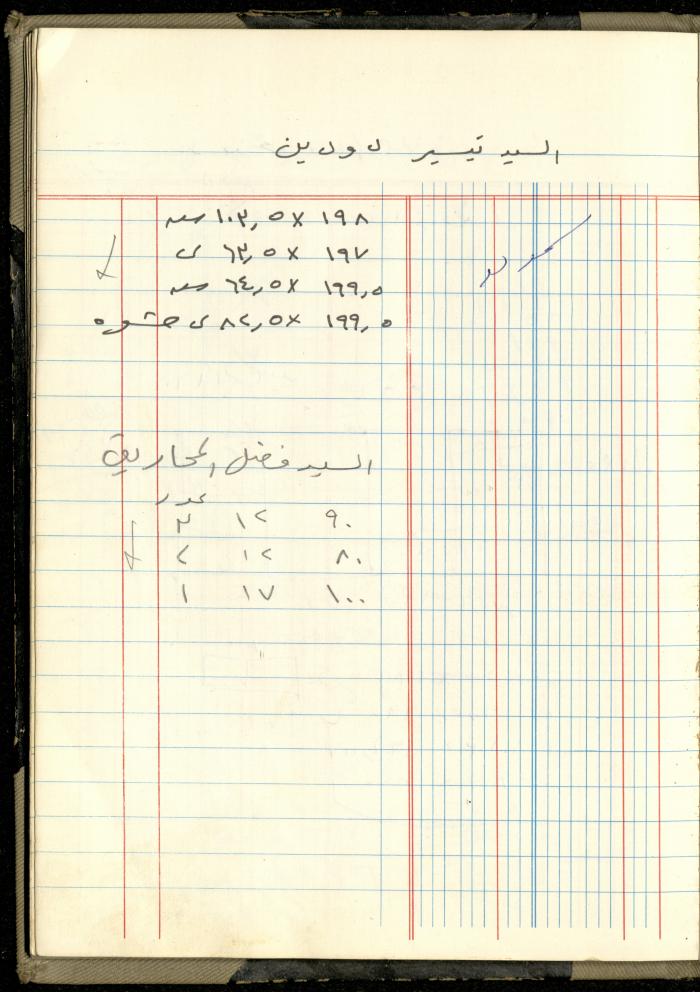 السيد تيسير دودين
١٩٨ × ١٠٣,٥
١٩٧ × ٦٣,٥ ى
١٩٩,٥ × ٦٤,٥
١٩٩,٥ × ٨٢,٥ ى حشوه
السيد فضل المحاريق
عدد
٩٠ ١٢ ٣
٨٠ ١٢ ٢
١٠٠ ١٧ ١